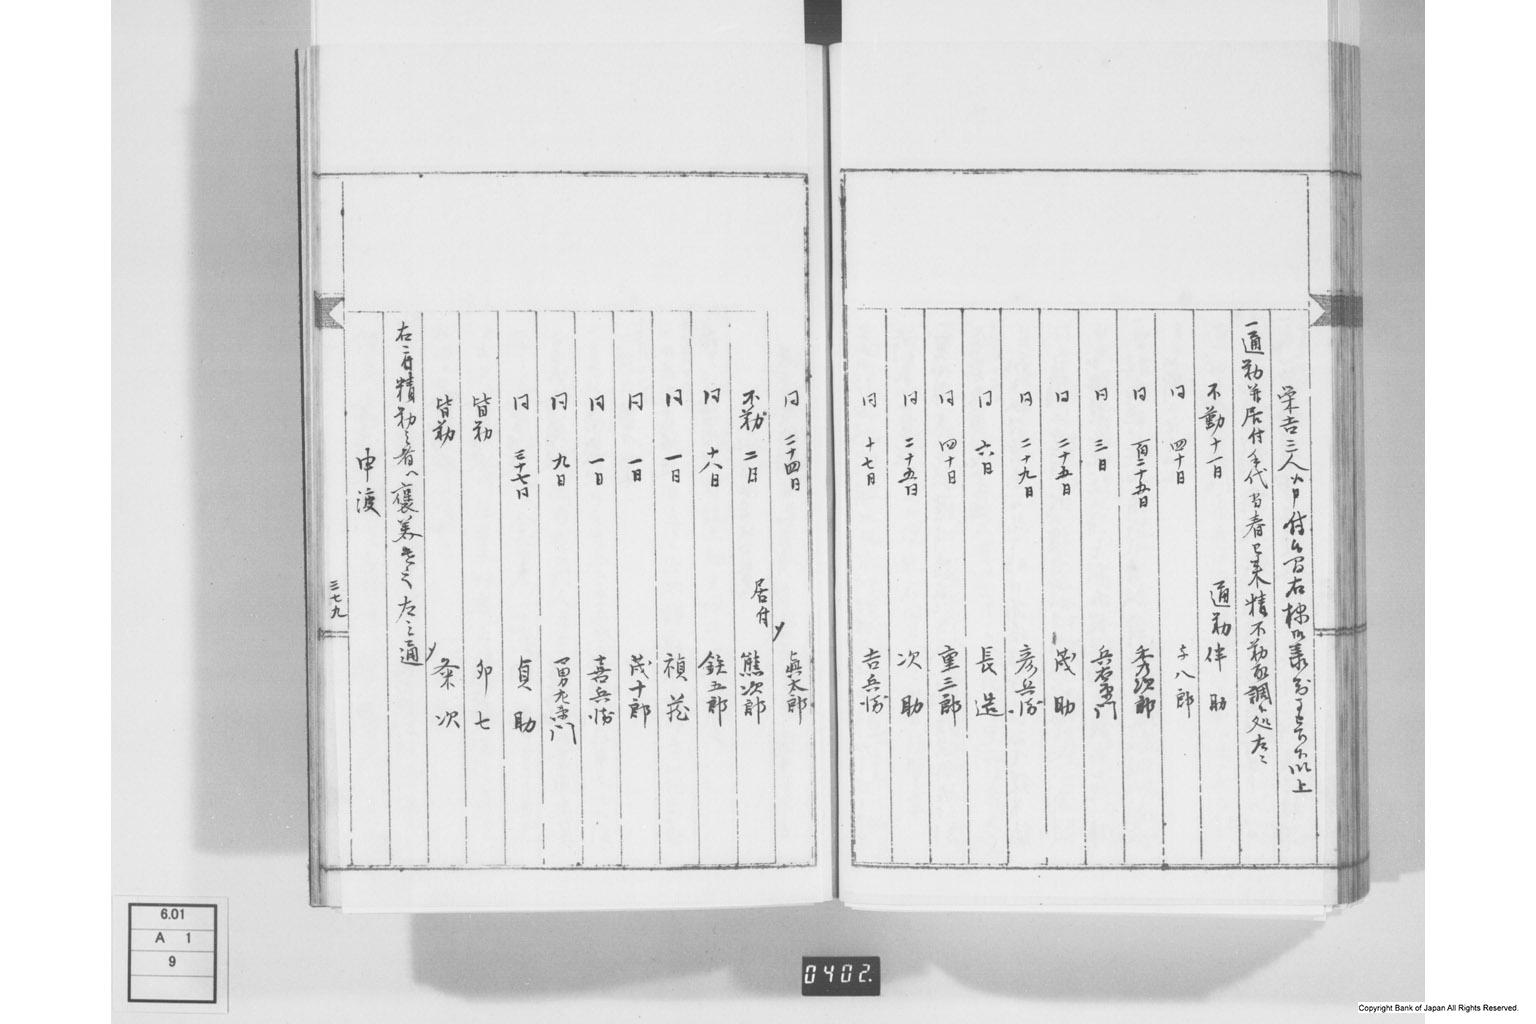 栄吉三人 付 右 以上
一通勤并居付手代当春已来精不勤取調候処左ニ
不勤十一日 通勤 伴助
同 四十日 与八郎
同 百二十五日 秀次郎
同 三日 兵右衛門
同 二十五日 茂助
同 二十九日 彦兵衛
同 六日 長造
同 四十日 重三郎
同 二十五日 次助
同 十七日 吉兵衛
同 二十四日 眞太郎
不勤 二日 居付 熊次郎
同 十八日 鉄五郎
同 一日 禎蔵
同 一日 茂十郎
同 一日 喜兵衛
同 九日 勇左衛門
同 三十七日 貞助
皆勤 卯七
皆勤 粂次
右之内精勤之者へ褒美 左之通
申渡
三七九
6.01
A 1
9
0402.
Copyright Bank of Japan All Rights Reserved.